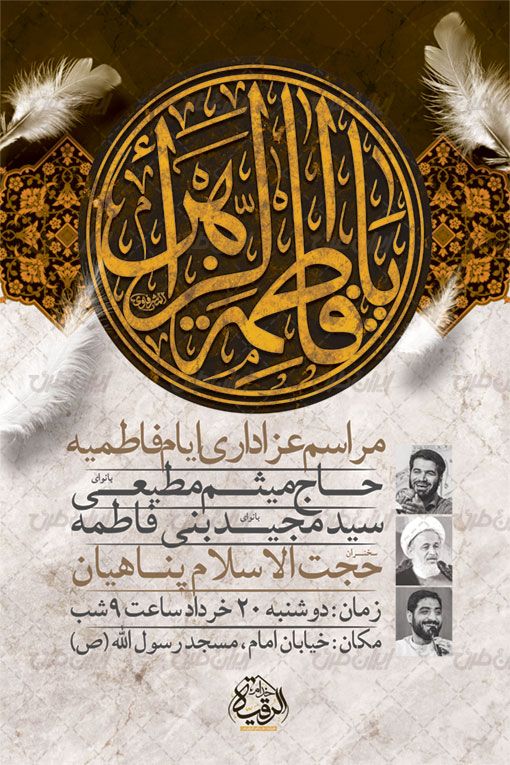 یا فاطمة الزهرا
مراسم عزاداری ایام فاطمیه
بانوای حاج میثم مطیعی
بانوای سید مجید بنی فاطمه
سخنران حجت الاسلام پناهیان
زمان: دوشنبه ۲۰ خرداد ساعت ۹ شب
مکان: خیابان امام، مسجد رسول الله (ص)
خدام
الرقیة
ایران طرح